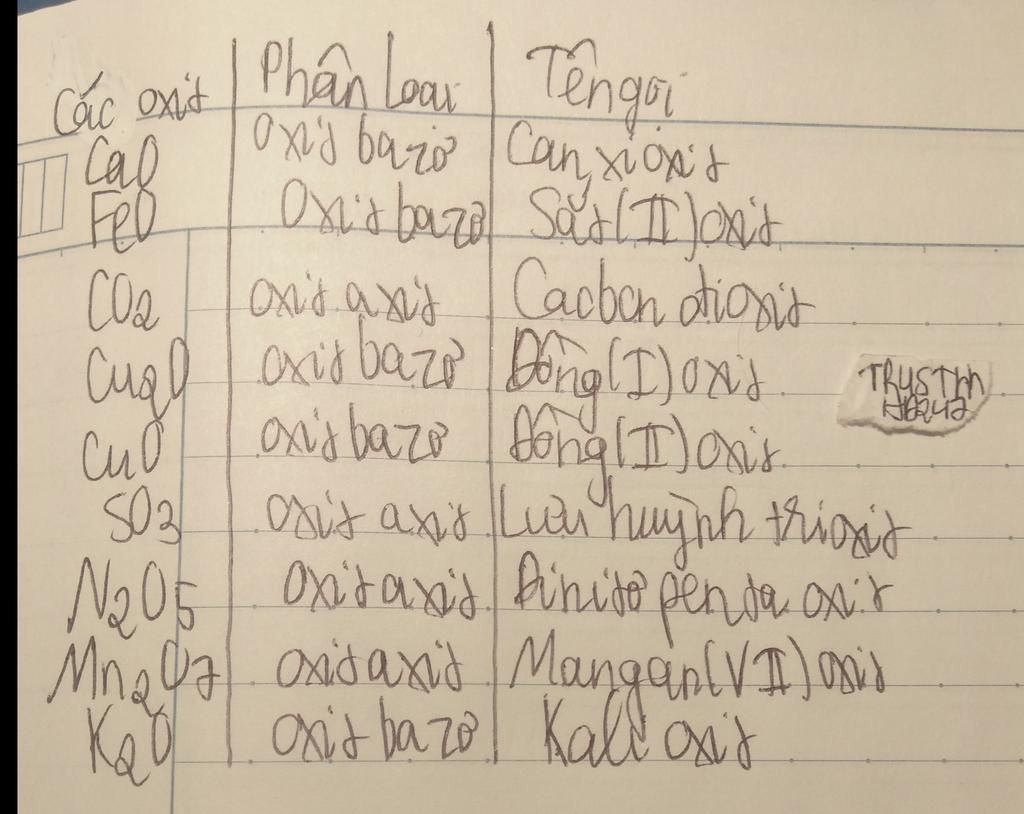 Các oxit Phân loại Tên gọi
CaO oxit bazơ Canxi oxit
FeO oxit bazơ Sắt(II) oxit
CO2 oxit axit Cacbon đioxit
Cu2O oxit bazơ Đồng(I) oxit
CuO oxit bazơ Đồng(II) oxit
SO3 oxit axit Lưu huỳnh trioxit
N2O5 oxit axit Đinitơ penta oxit
Mn2O7 oxit axit Mangan(VII) oxit
K2O oxit bazơ Kali oxit